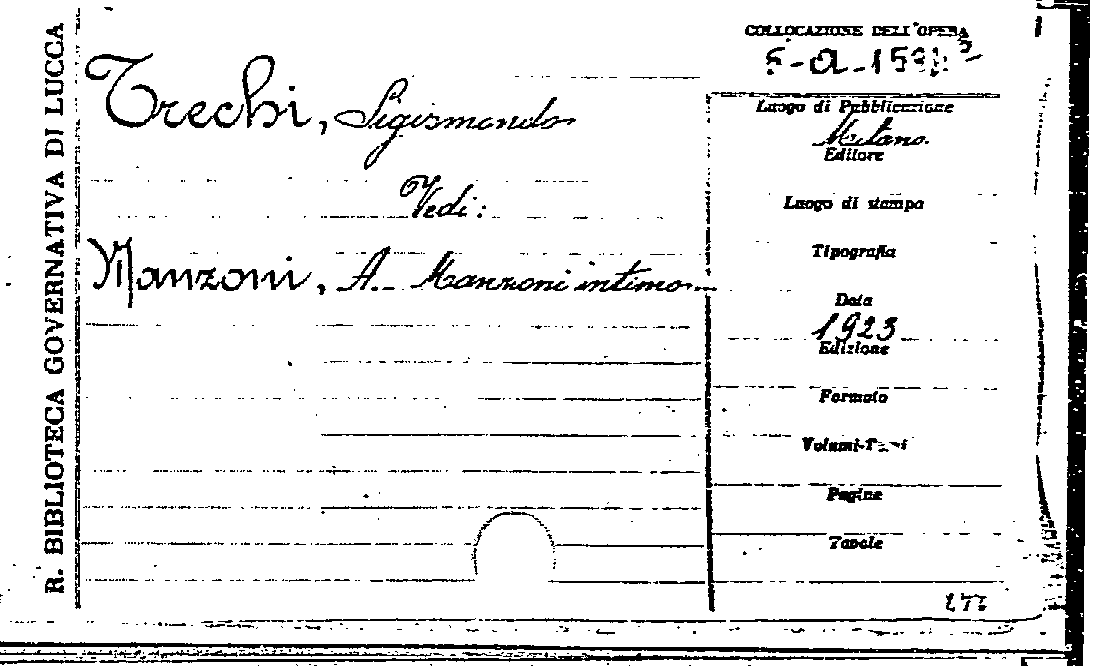 R. BIBLIOTECA GOVERNATIVA DI LUCCA
COLLOCAZIONE DELL'OPERA
Trechi, Sigismondo
Vedi:
Manzoni, A. - Manzoni intimo...
Luogo di Pubblicazione
Milano.
Editore
Luogo di stampa
Tipografia
Data
1923
Edizione
Formato
Volumi-Tomi
Pagine
Tavole